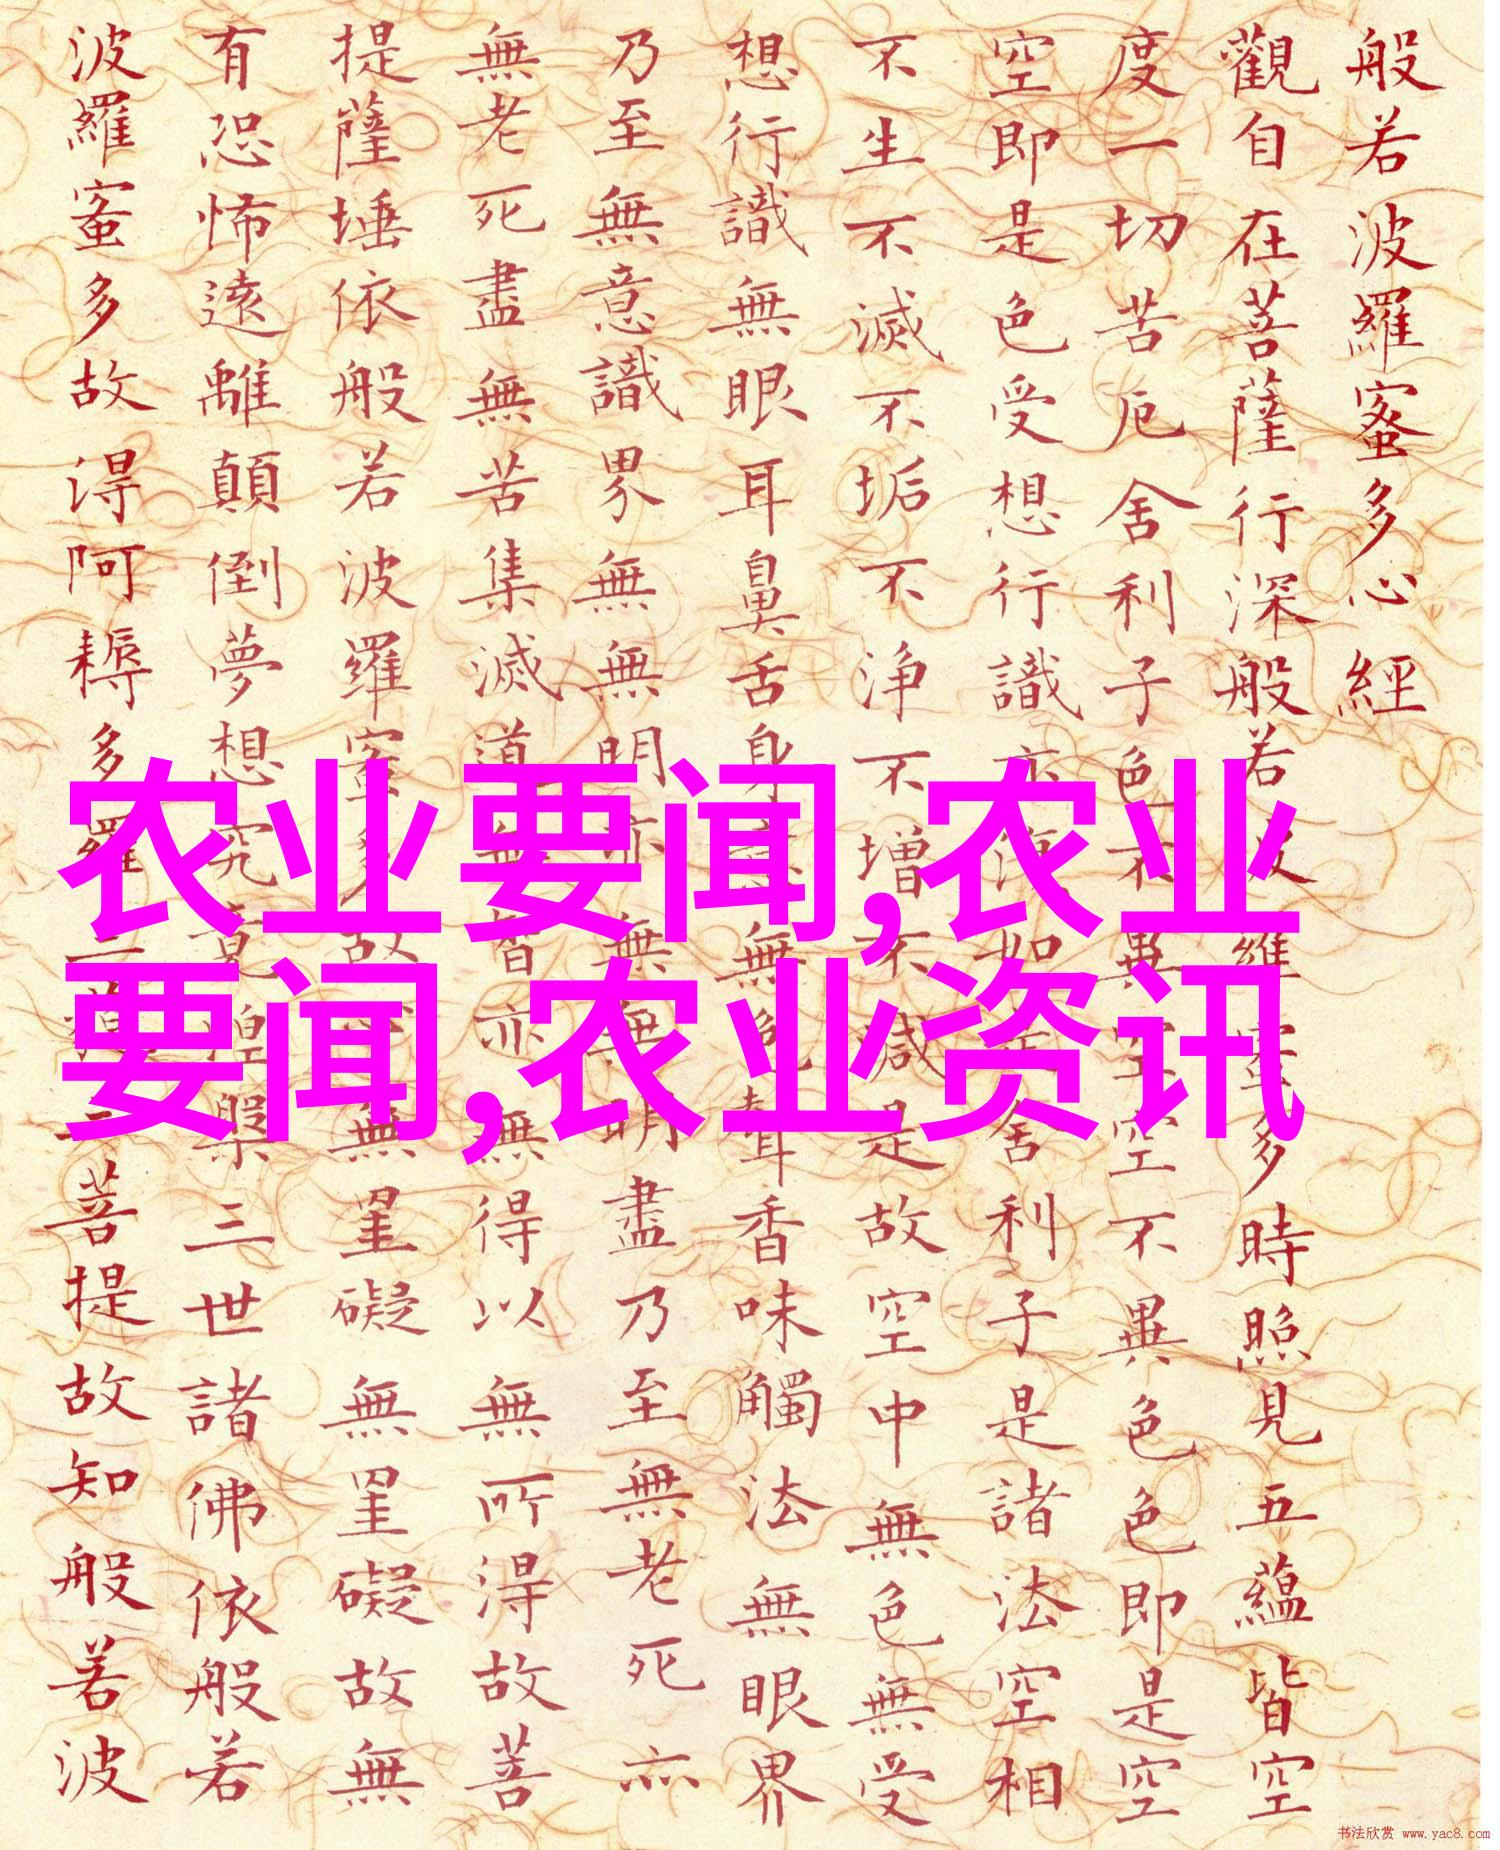 般若波羅蜜多心經
觀自在菩薩行深般若波羅蜜多時照見五蘊皆空
度一切苦厄舍利子色不異空空不異色色即是空
空即是色受想行識亦復如是舍利子是諸法空相
不生不滅不垢不淨不增不減是故空中無色無受
想行識無眼耳鼻舌身意無色聲香味觸法無眼界
乃至無意識界無無明亦無無明盡乃至無老死亦
無老死盡無苦集滅道無智亦無得以無所得故菩
提薩埵依般若波羅蜜多故心無罣礙無罣礙故無
有恐怖遠離顛倒夢想究竟涅槃三世諸佛依般若
波羅蜜多故得阿耨多羅三藐三菩提故知般若波
农业要闻,农业
要闻,农业资讯
书法欣赏 www.yac8.com